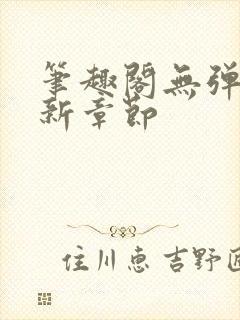 筆趣閣無弹
新章節
住川恵吉野匠